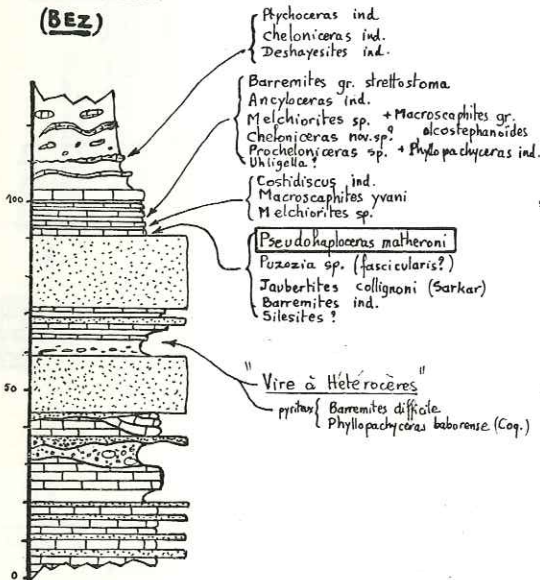 (BEZ)
Ptychoceras ind
Cheloniceras ind.
Deshayesites ind.
Barremites gr. strettostoma
Ancyloceras ind.
Melchiorites sp. + Macroscaphites gr.
Cheloniceras nov. sp? alcostephanoides
Procheloniceras sp. + Phyllopachyceras ind.
Uhligella ?
Costidiscus ind.
Macroscaphites yvani
Melchiorites sp.
Pseudohaploceras matheroni
Puzozia sp. (fascicularis?)
Jaubertites collignoni (Sarkar)
Barremites ind.
Silesites ?
"Vire à Hétérocères"
pyriteux Barremites difficile
Phyllopachyceras baborense (Coq.)
100
50
0